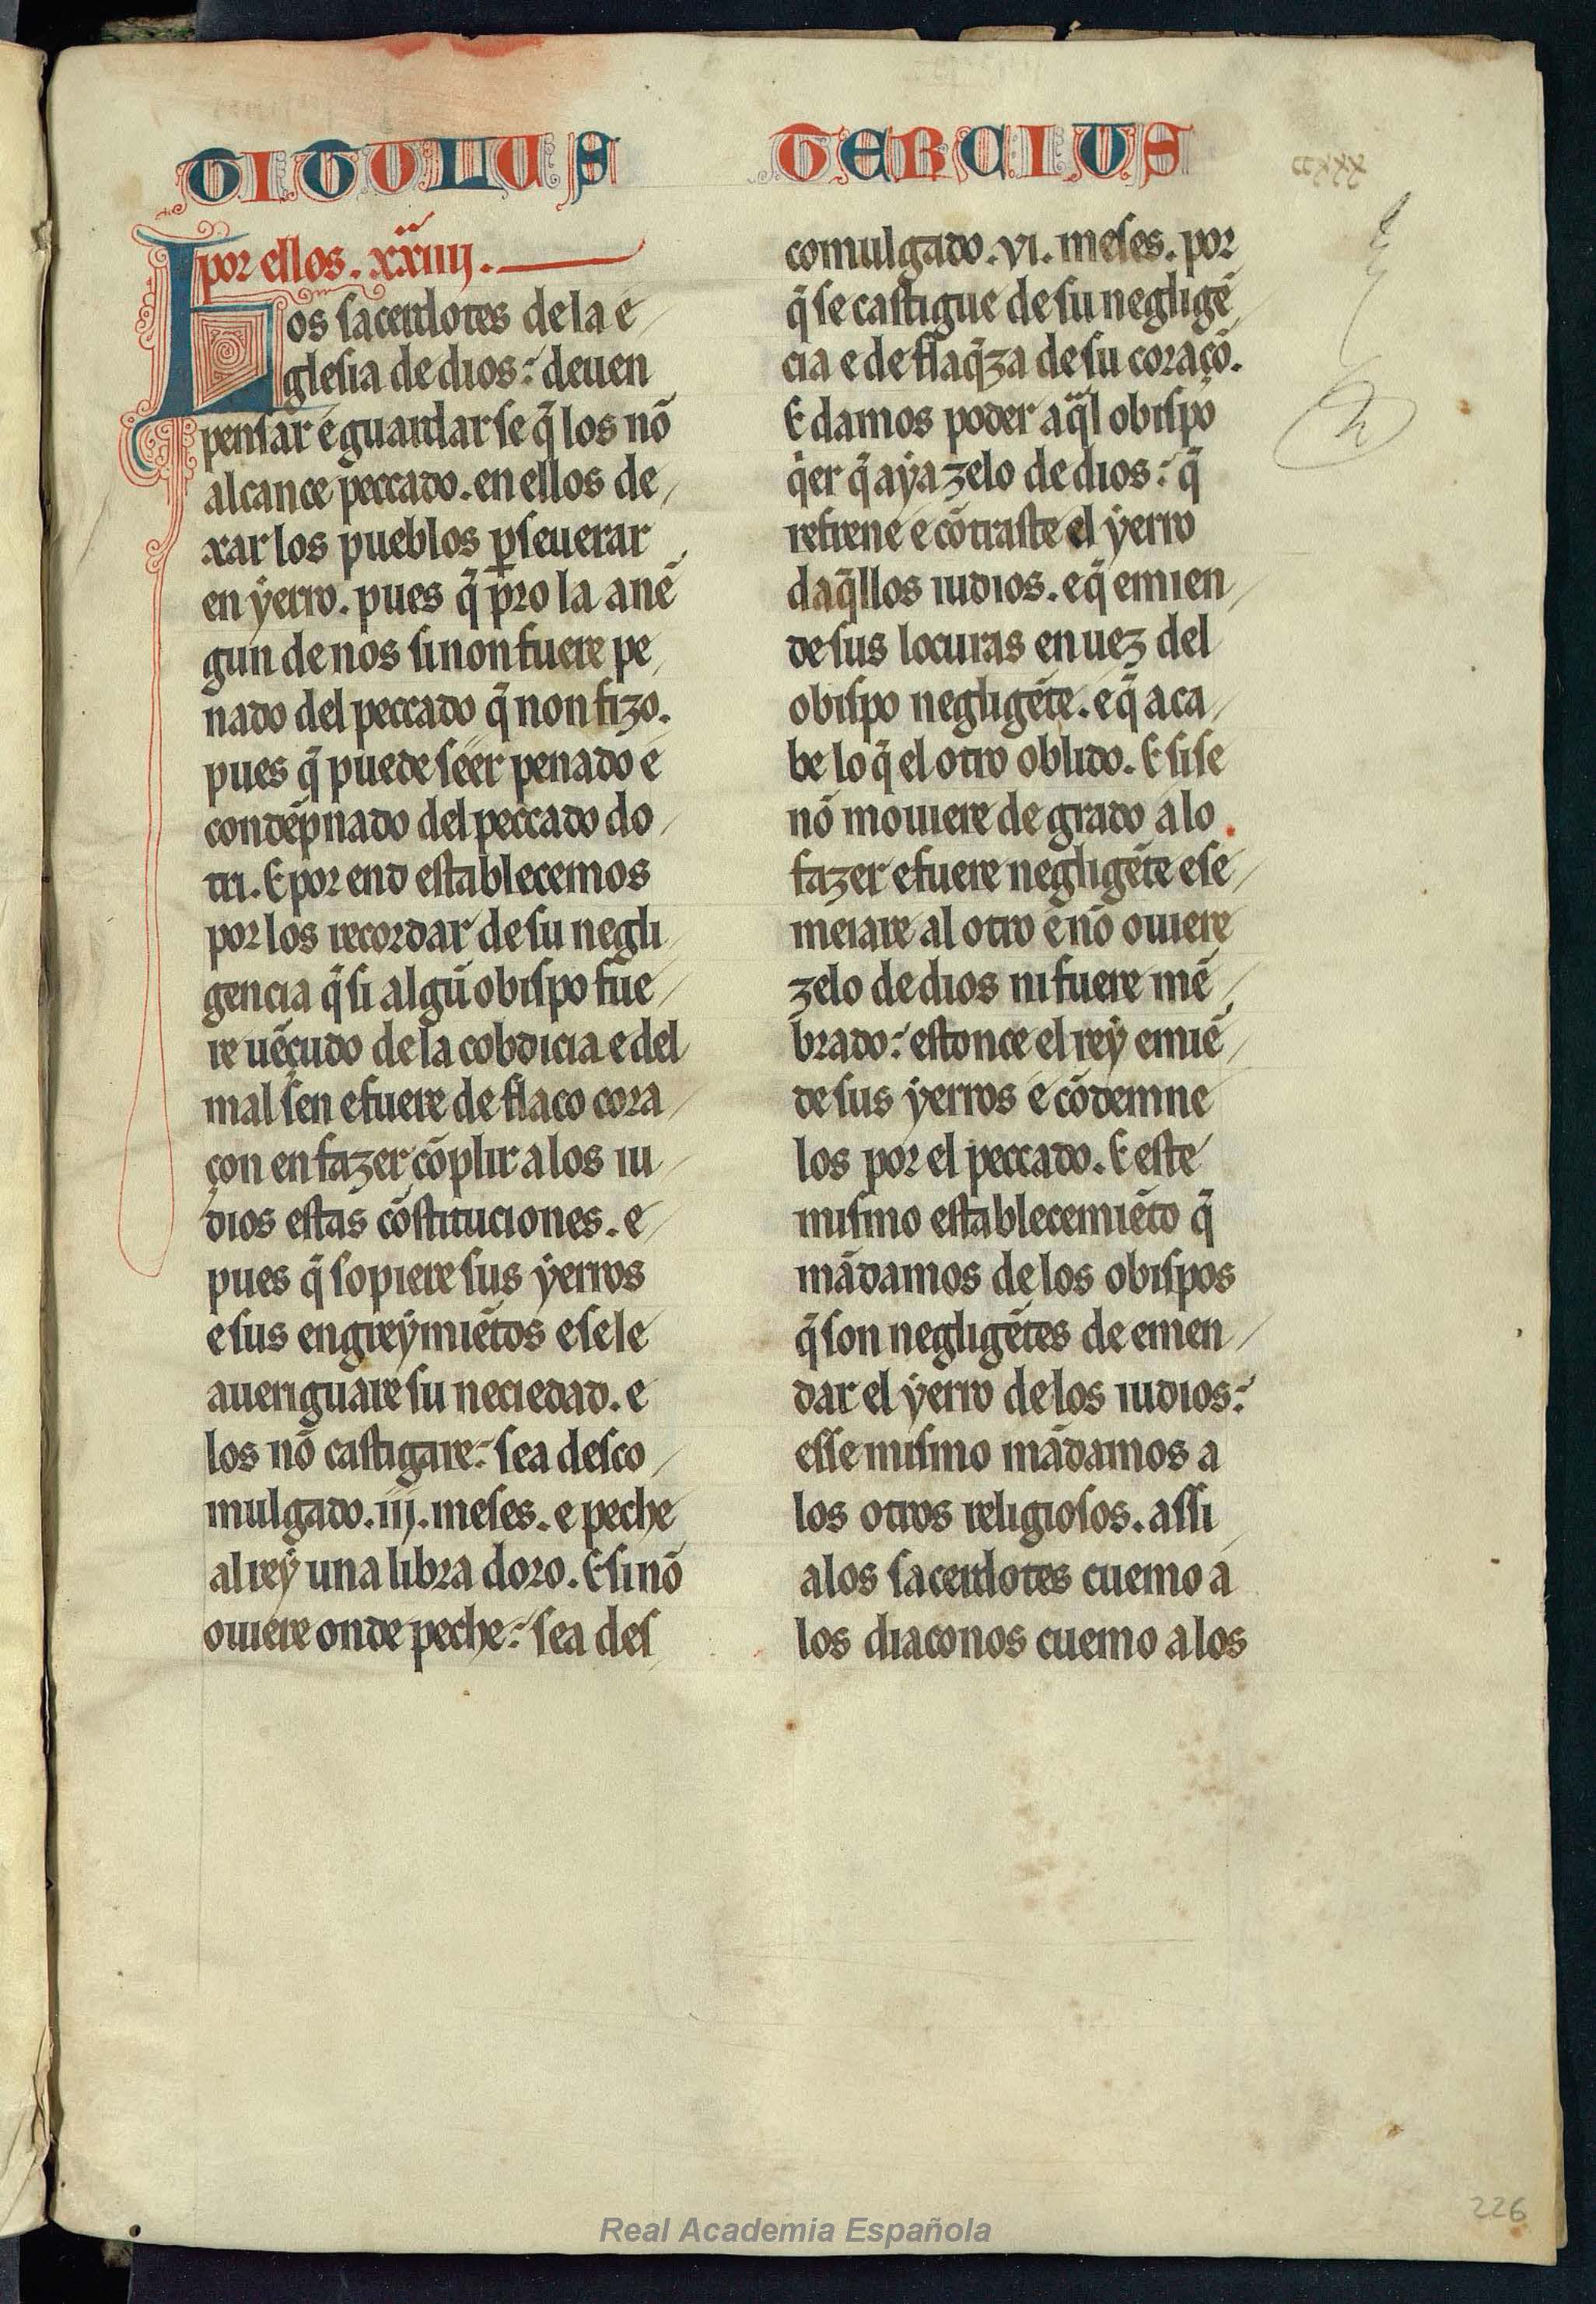 TITULUS TERCIUS
por ellos. xxiiii.
Los sacerdotes de la e
glesia de dios: deuen
pensar e guardar se q̃ los nõ
alcance peccado. en ellos de
xar los pueblos p̲seuerar
en yerro. pues q̃ pro la anẽ
gun de nos si non fuere pe
nado del peccado q̃ non fizo.
pues q̃ puede seer penado e
condẽpnado del peccado do
tri. E por end establecemos
por los recordar de su negli
gencia q̃ si algũ obispo fue
re uẽçudo de la cobdicia e del
mal sen e fuere de flaco cora
çon en fazer cõplir a los iu
dios estas cõstituciones. e
pues q̃ sopiere sus yerros
e sus engreymiẽtos e se le
aueriguare su neciedad. e
los nõ castigare: sea desco
mulgado. iij. meses. e peche
al rey una libra doro. E si nõ
ouiere onde peche: sea des
comulgado. vi. meses. por
q̃ se castigue de su negligẽ
cia e de flaq̃za de su coraçõ.
E damos poder a q̃l obispo
q̃er q̃ aya zelo de dios: q̃
refrene e cõtraste el yerro
daq̃llos iudios. e q̃ emien
de sus locuras en uez del
obispo negligẽte. e q̃ aca
be lo q̃ el otro oblido. E si se
nõ mouiere de grado a lo
fazer e fuere negligẽte e se
meiare al otro e nõ ouiere
zelo de dios ni fuere mẽ
brado: estonce el rey emiẽ
de sus yerros e cõdemne
los por el peccado. E este
mismo establecemiẽto q̃
mãdamos de los obispos
q̃ son negligẽtes de emen
dar el yerro de los iudios:
esse mismo mãdamos a
los otros religiosos. assi
a los sacerdotes cuemo a
los diaconos cuemo a los
226
Real Academia Española